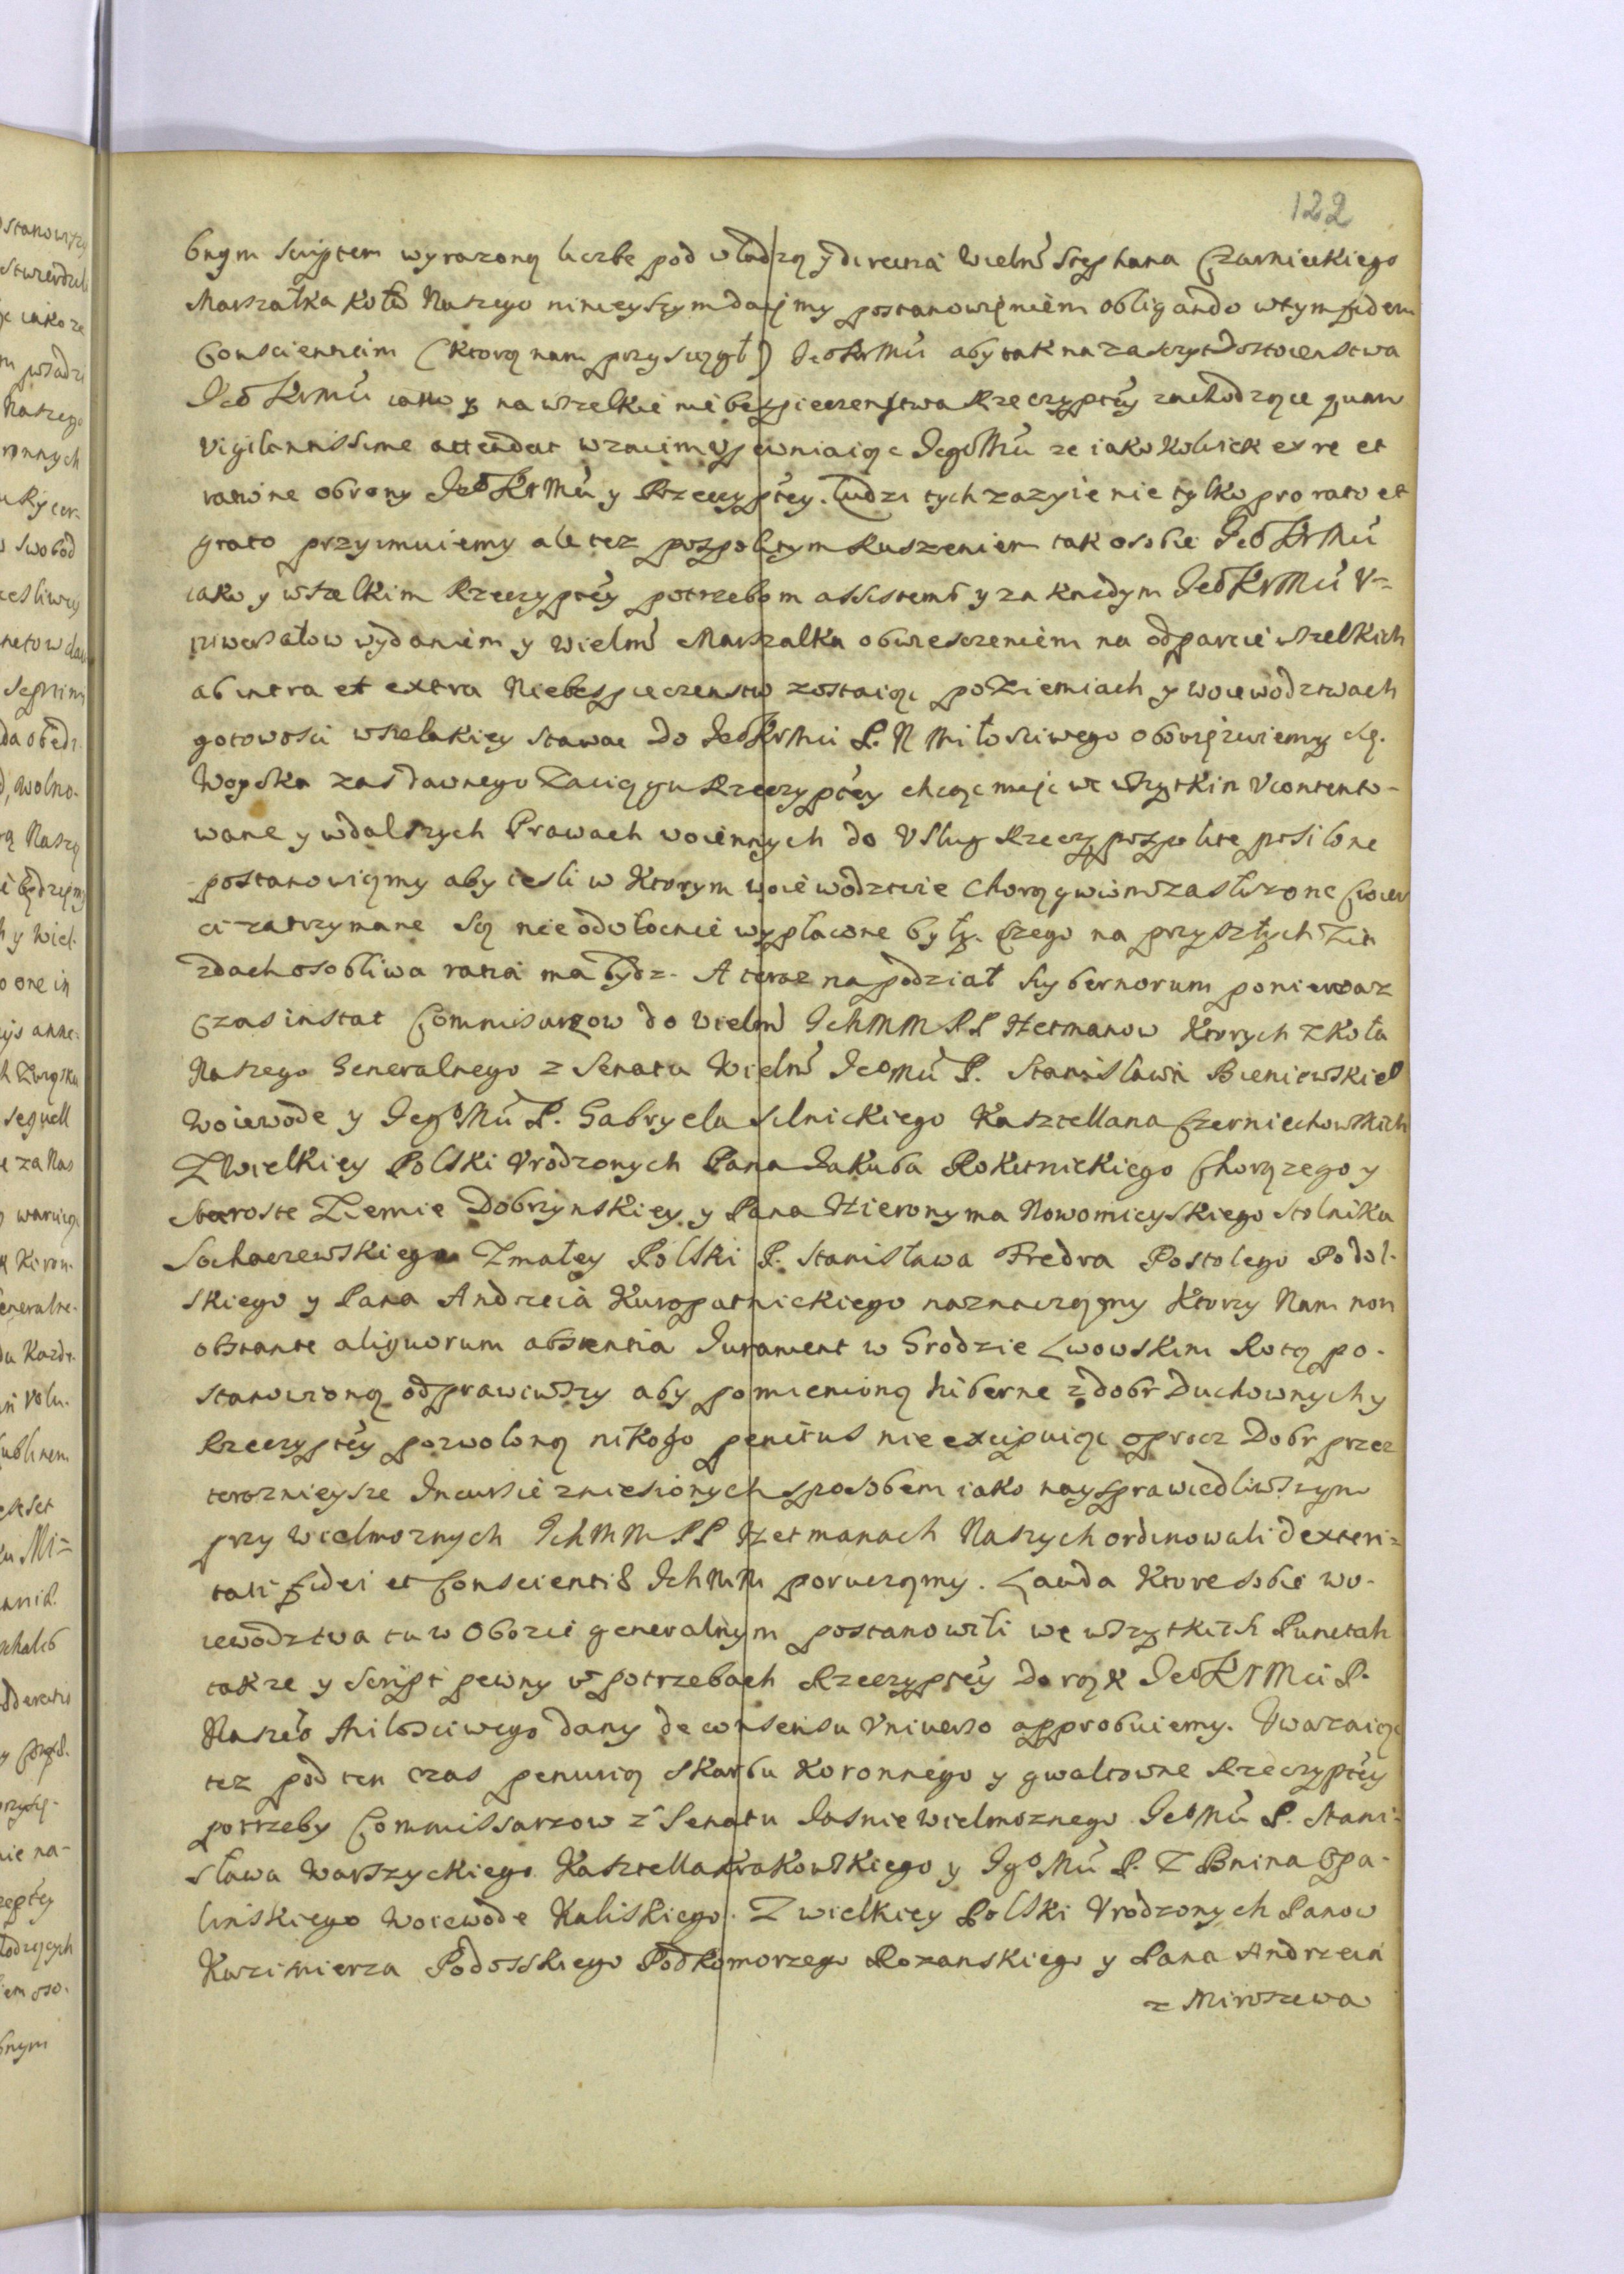 122
bnym scriptem wyrazoną liczbe pod władzą y direcria Wielm Stephana Czarnieckiego
Marszałka koła Naszego ninieyszym daięmy postanowięniem obligando wtym fidem
Conscientiam (ktorą nam przysiągł) JeoKrMci aby tak na zaszczyt Dostoienstwa
JeoKrMci iako y na wszelkie niebezpieczenstwa Rzeczyptey zachodzące quam
vigilantissime attendat wzaiem upewniaiąc JegoMci ze iakokolwiek ex re et
ratione obrony JeoKrMci y Rzeczyptey. Ludzi tych zazyie nie tylko pro rato et
grato przyimuiemy ale tez pospolitym Ruszeniem tak osobie JeoKrMci
iako y wszelkim Rzeczyptey potrzebom assistemb y za kazdym JeoKrMci V=
niwersałow wydaniem y Wielm Marszalka obwiesczeniem na odparcie wszelkich
ab intra et extra Niebespieczenstw zostaiąc po Ziemiach y woiewodztwach
gotowosci wszelakiey stawac do JeoKrMci P. N Miłosciwego obowięzuiemy się.
Woyska zas dawnego Zaciągu Rzeczyptey chcąc miec we wszytkim Vcontento-
wane y wdalszych Prawach woiennych do Vslug Rzeczypospolite posilone
postanowiąmy aby iesli w ktorym woiewodztwie Chorągwiom zasłuzone Cwier
ci zatrzymane są nieodwłocnie wypłacone były. Czego na przyszłych Zia
zdach osobliwa ratia ma bydz. A teraz na podział hybernorum poniewaz
Czas instat Commisarzow do Wielm IchMM PP Hetmanow Ktorych z Koła
Naszego Generalnego z Senatu Wielm JeoMci P. Stanisława Bieniewskieo
Woiewode y JegoMci P. Gabryela Silnickiego Kasztellana Czerniechowskich
Z Wielkiey Polski Vrodzonych Pana Jakuba Rokitnickiego Chorązego y
Staroste Ziemie Dobrzynskiey y Pana Hieronyma Nowomieyskiego Stolnika
Sochaczewskiego Z małey Polski P. Stanisława Fredra Postolego Podol-
skiego y Pana Andrzeia Kuropatnickiego naznacząmy Ktorzy Nam non
obstante aliquorum absentia Jurament w Grodzie Lwowskim Rotą po-
stanowioną odprawiwszy aby pomienioną hiberne z dobr Duchownych y
Rzeczyptey pozwoloną nikogo penitus nie excipuiąc oprocz Dobr przez
teraznieysze Incursie zniesionych sposobem iako naysprawiedliwszym
przy Wielmoznych IchMM PP Hetmanach Naszych ordinowali dexteri=
tati fidei et Conscientiæ IchMM poruczamy. Lauda Ktore sobie wo-
iewodztwa tu w Obozie generalnym postanowili we wszytkich Punctah
takze y Script pewny w potrzebach Rzeczyptey do rąk JeoKrMci P.
Naszeo Miłosciwego dany de consensu Vniverso approbuiemy. Vwazaiąc
tez pod ten czas penurią Skarbu Koronnego y gwaltowne Rzeczyptey
potrzeby Commissarzow z Senatu Jasnie Wielmoznego JeoMci P. Stani=
sława Warszyckiego Kasztellana Krakowskiego y JgoMci P. Z Bnina Opa-
linskiego Woiewode Kaliskiego. Z wielkiey Polski Vrodzonych Panow
Kazimierza Podosskiego Podkomorzego Rozanskiego y Pana Andrzeia
z Miroszewa